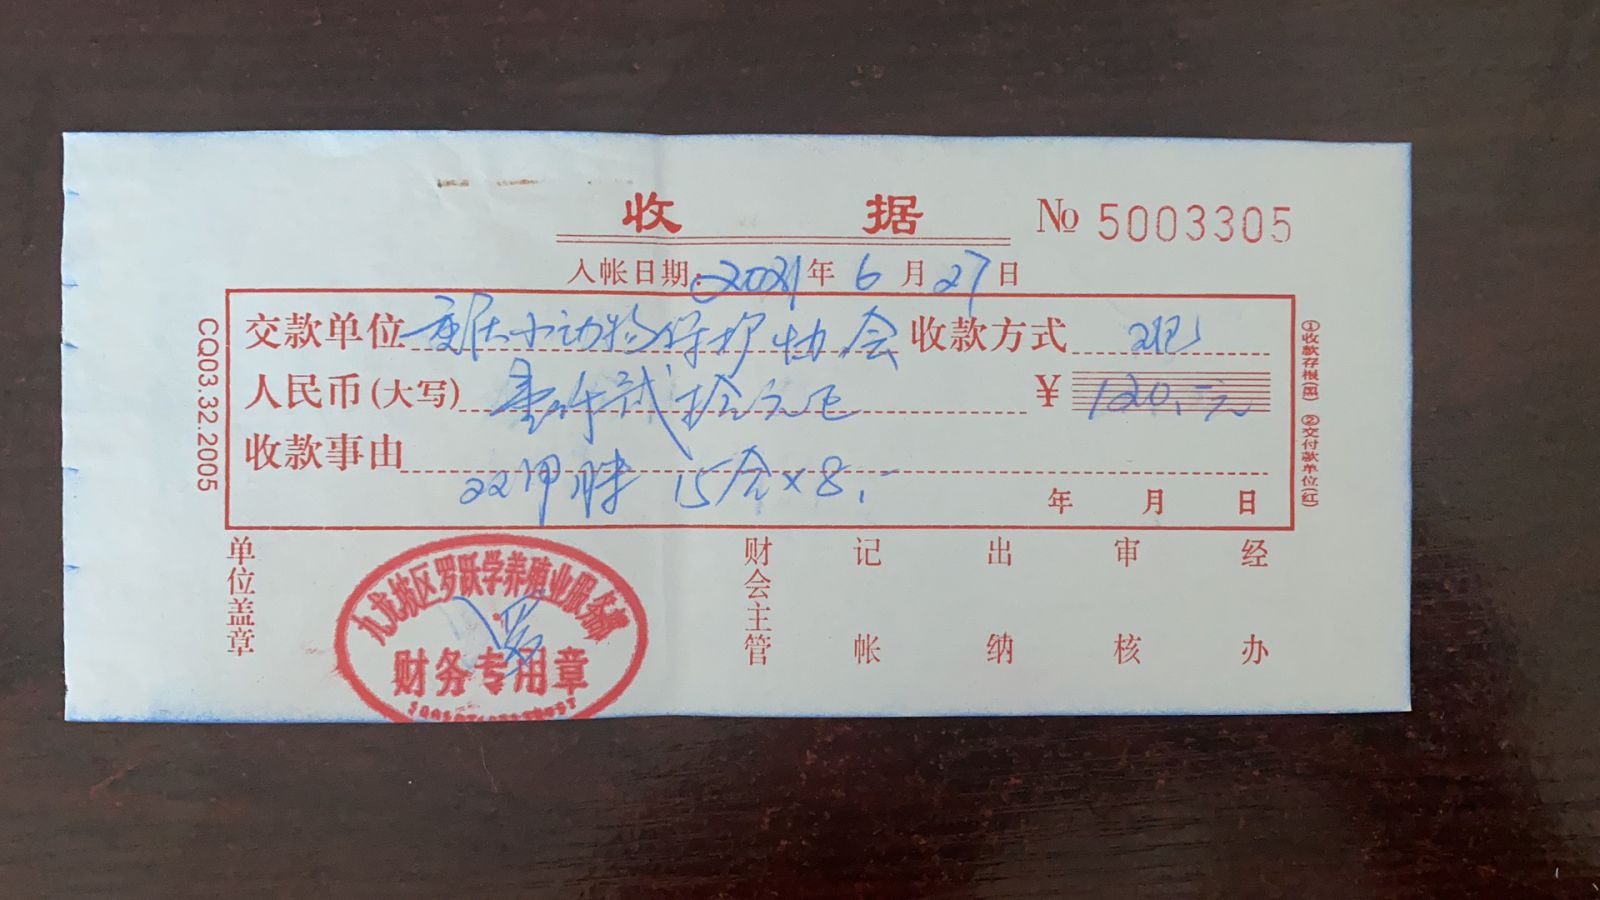 收 据
№ 5003305
入帐日期：2021年 6 月 27 日
交款单位 重庆小动物保护协会 收款方式 现
人民币(大写) 壹佰贰拾元正 ￥ 120.元
收款事由 双甲脒 15合×8.-
年 月 日
CQ03.32.2005
①收款存根(黑) ②交付款单位(红)
单位盖章
财会主管
记帐
出纳
审核
经办
九龙坡区罗跃学养殖业服务部
财务专用章